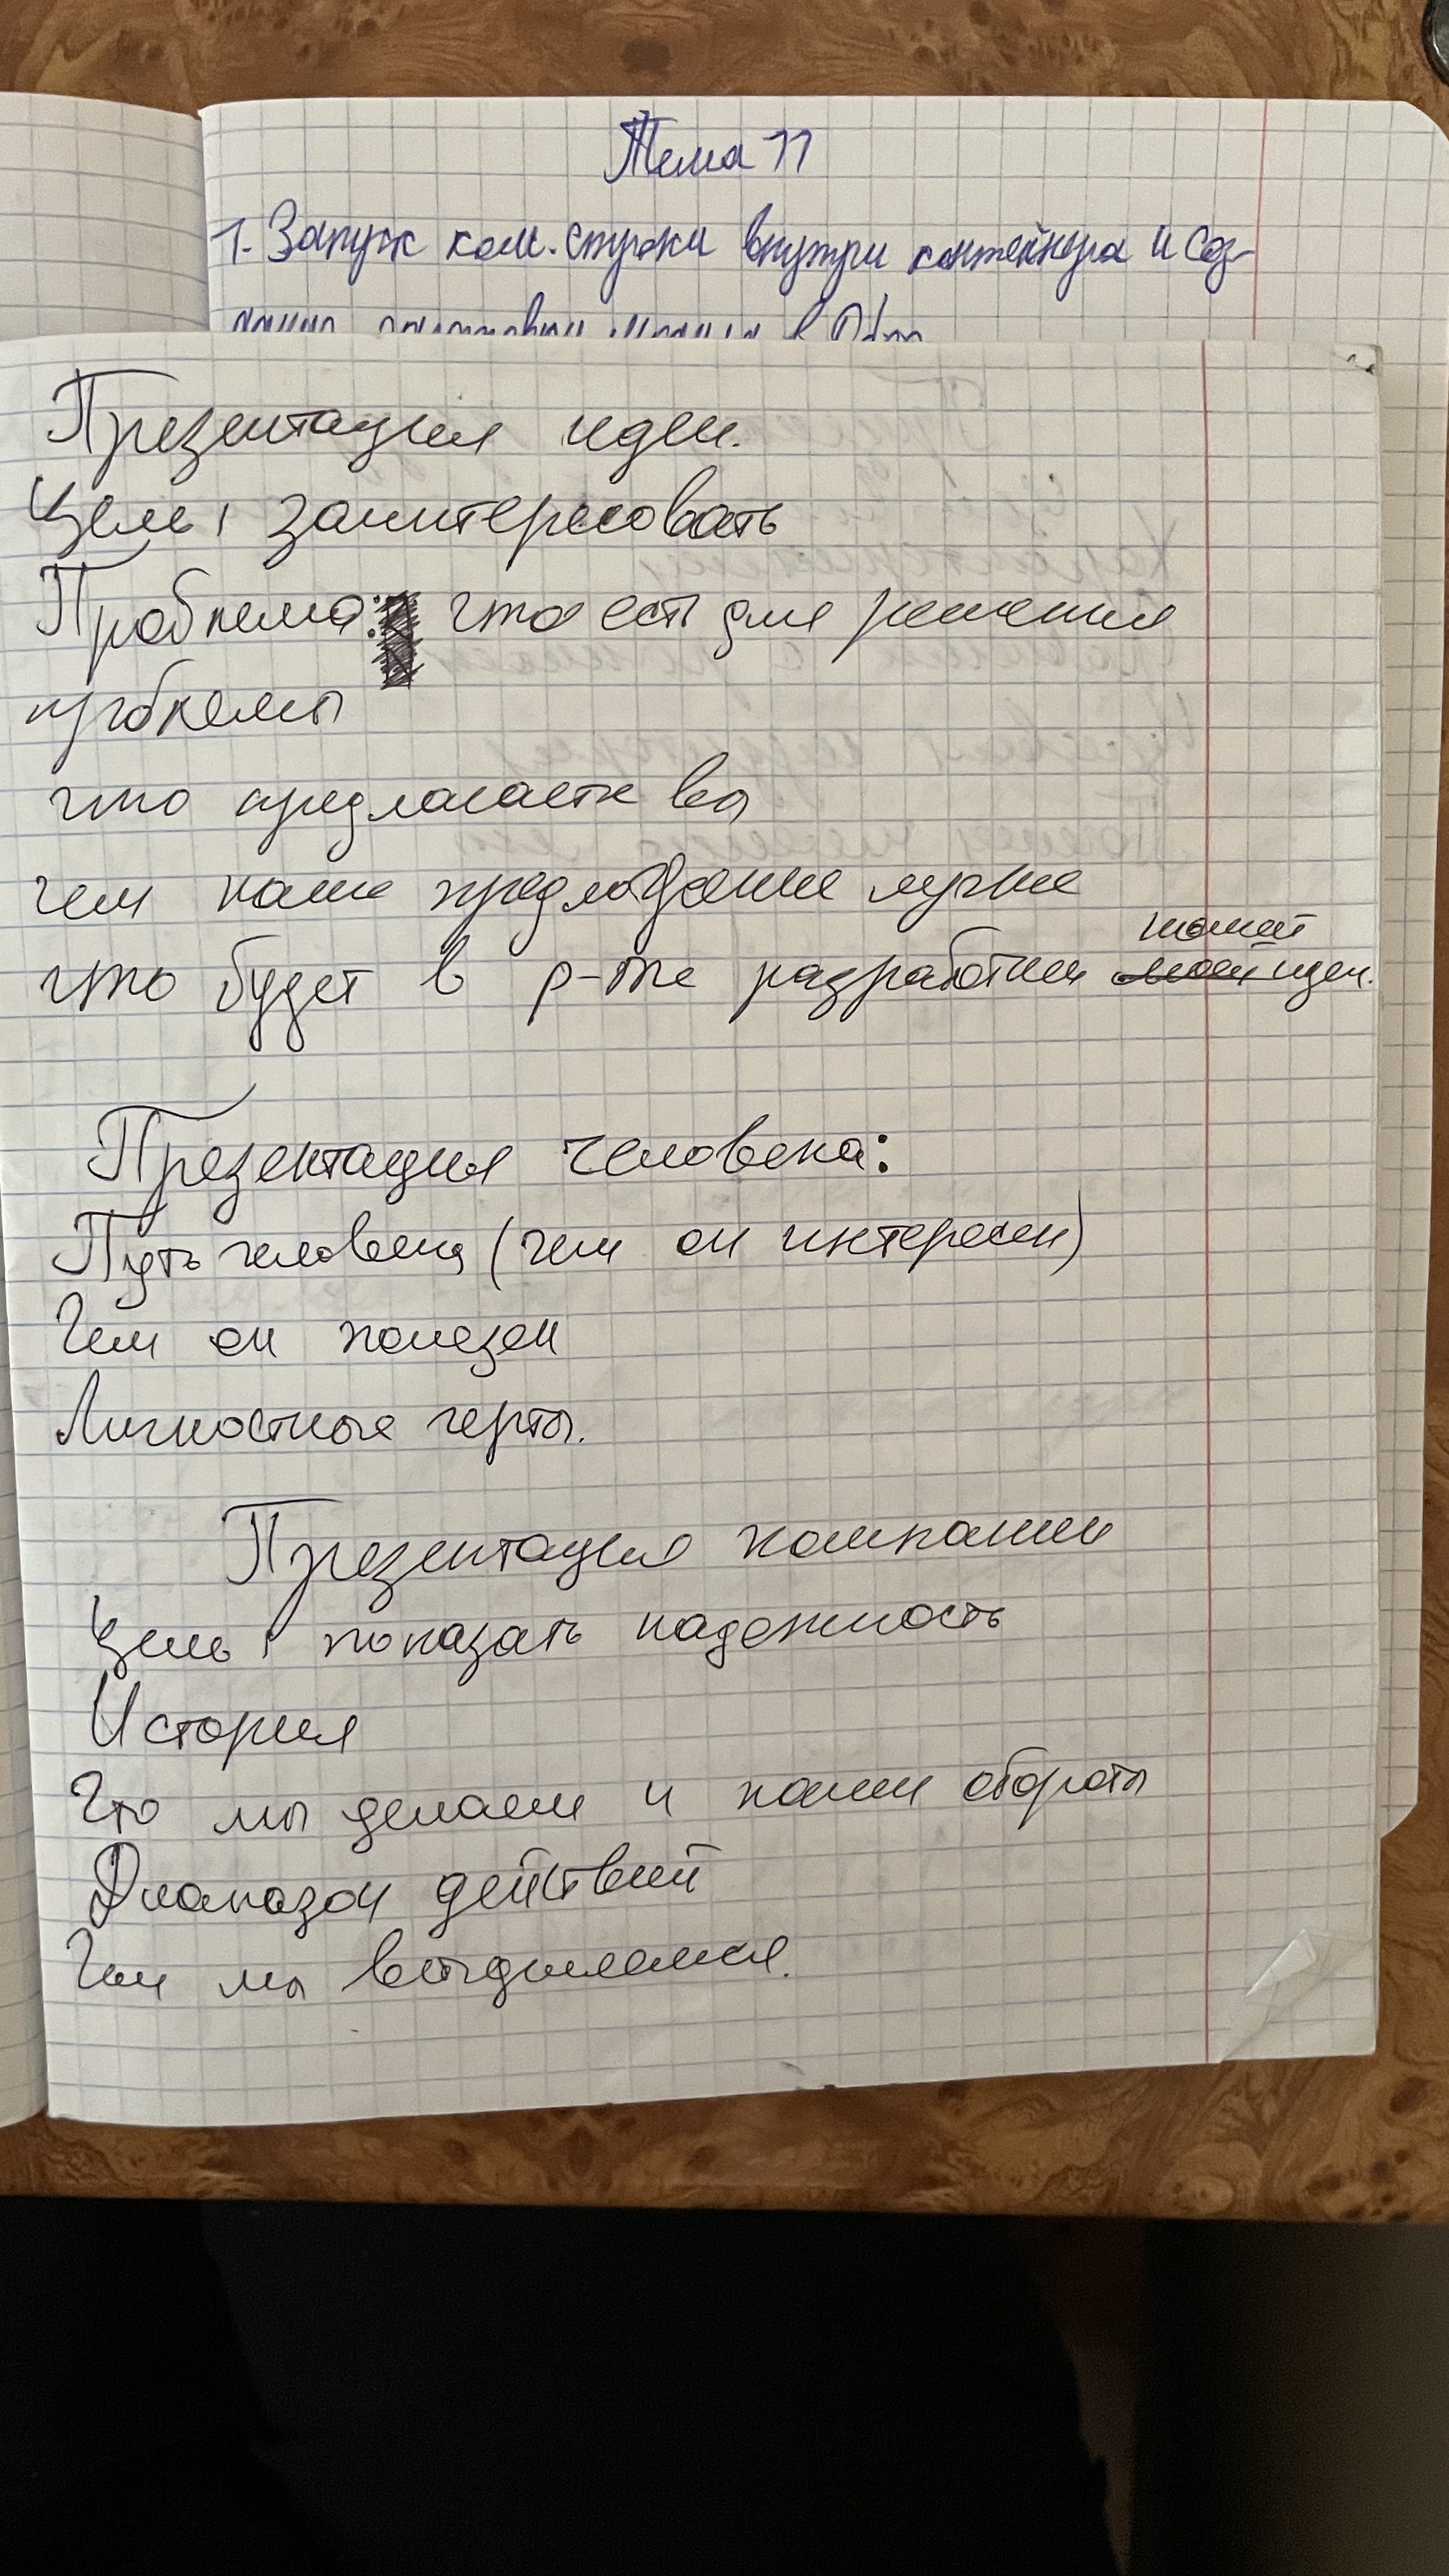 Тема 11
1. Запуск ком. строки внутри контейнера и соз-
Презентация идеи.
Цель: заинтересовать
Проблема: что есть для решения
проблемы
что предлагаете вы
чем наше предложение лучше
что будет в р-те разработки нашей идеи.
Презентация человека:
Путь человека (чем он интересен)
Чем он полезен
Личностные черты.
Презентация компании
Цель: показать надежность
История
Что мы делаем и наши обороты
Диапазон действий
Чем мы выделяемся.